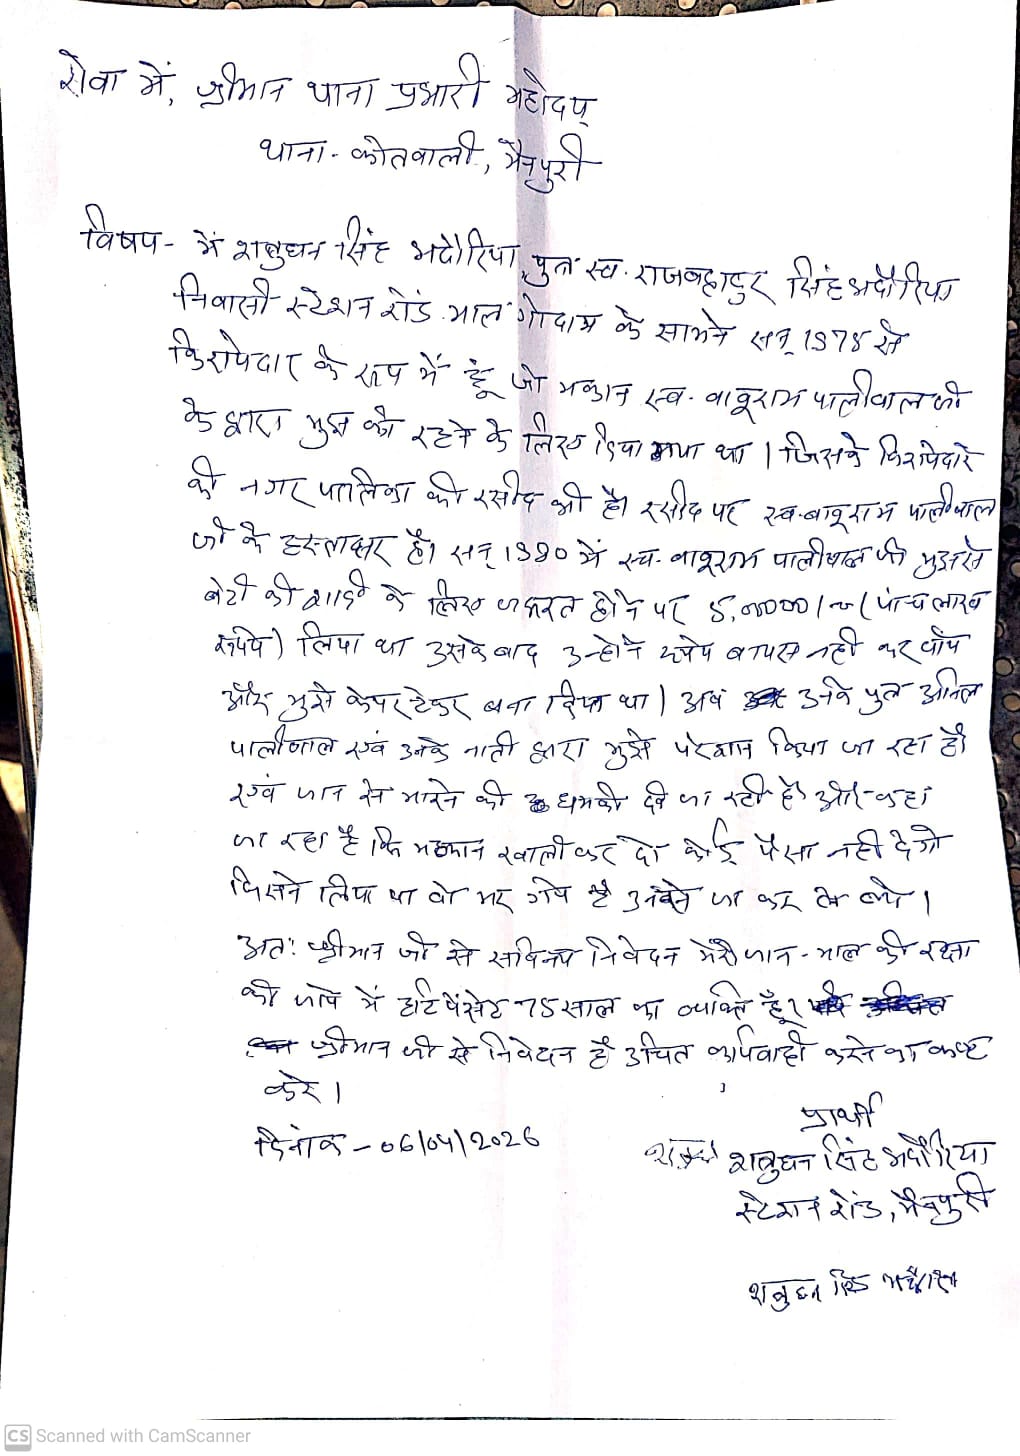 सेवा में, श्रीमान थाना प्रभारी महोदय
थाना- कोतवाली, मैनपुरी
विषय- में शत्रुघन सिंह भदौरिया पुत्र स्व. राजबहादुर सिंह भदौरिया
निवासी स्टेशन रोड माल गोदाम के सामने सन् 1978 से
किरायेदार के रूप में हूं जो मकान स्व. बाबूराम पालीवाल जी
के द्वारा मुझ को रहने के लिए दिया गया था। जिसके किरायेदारे
की नगर पालिका की रसीद भी है। रसीद पर स्व. बाबूराम पालीवाल
जी के हस्ताक्षर है। सन् 1990 में स्व. बाबूराम पालीवाल जी मुझसे
बेटी की शादी के लिए जरूरत होने पर 5,00000/- (पांच लाख
रूपये) लिया था उसके बाद उन्होने रूपये वापस नही कर पाये
और मुझे केयर टेकर बना दिया था। अब उनके पुत्र अनिल
पालीवाल एवं उनके नाती द्वारा मुझे परेशान किया जा रहा है।
एवं जान से मारने की धमकी दी जा रही है। और कहा
जा रहा है कि मकान खाली कर दो कोई पैसा नही देगे
जिसने लिया था वो मर गये है उनसे जा कर ले लो।
अतः श्रीमान जी से सविनय निवेदन मेरी जान-माल की रक्षा
की जाये में हार्ट पेंसेट 75 साल का व्यक्ति हूँ।
श्रीमान जी से निवेदन है उचित कार्यवाही करने का कष्ट
करे।
दिनांक - 06/04/2026
प्रार्थी
शत्रुघन सिंह भदौरिया
स्टेशन रोड, मैनपुरी
शत्रुघन सिंह भदौरिया
CS Scanned with CamScanner